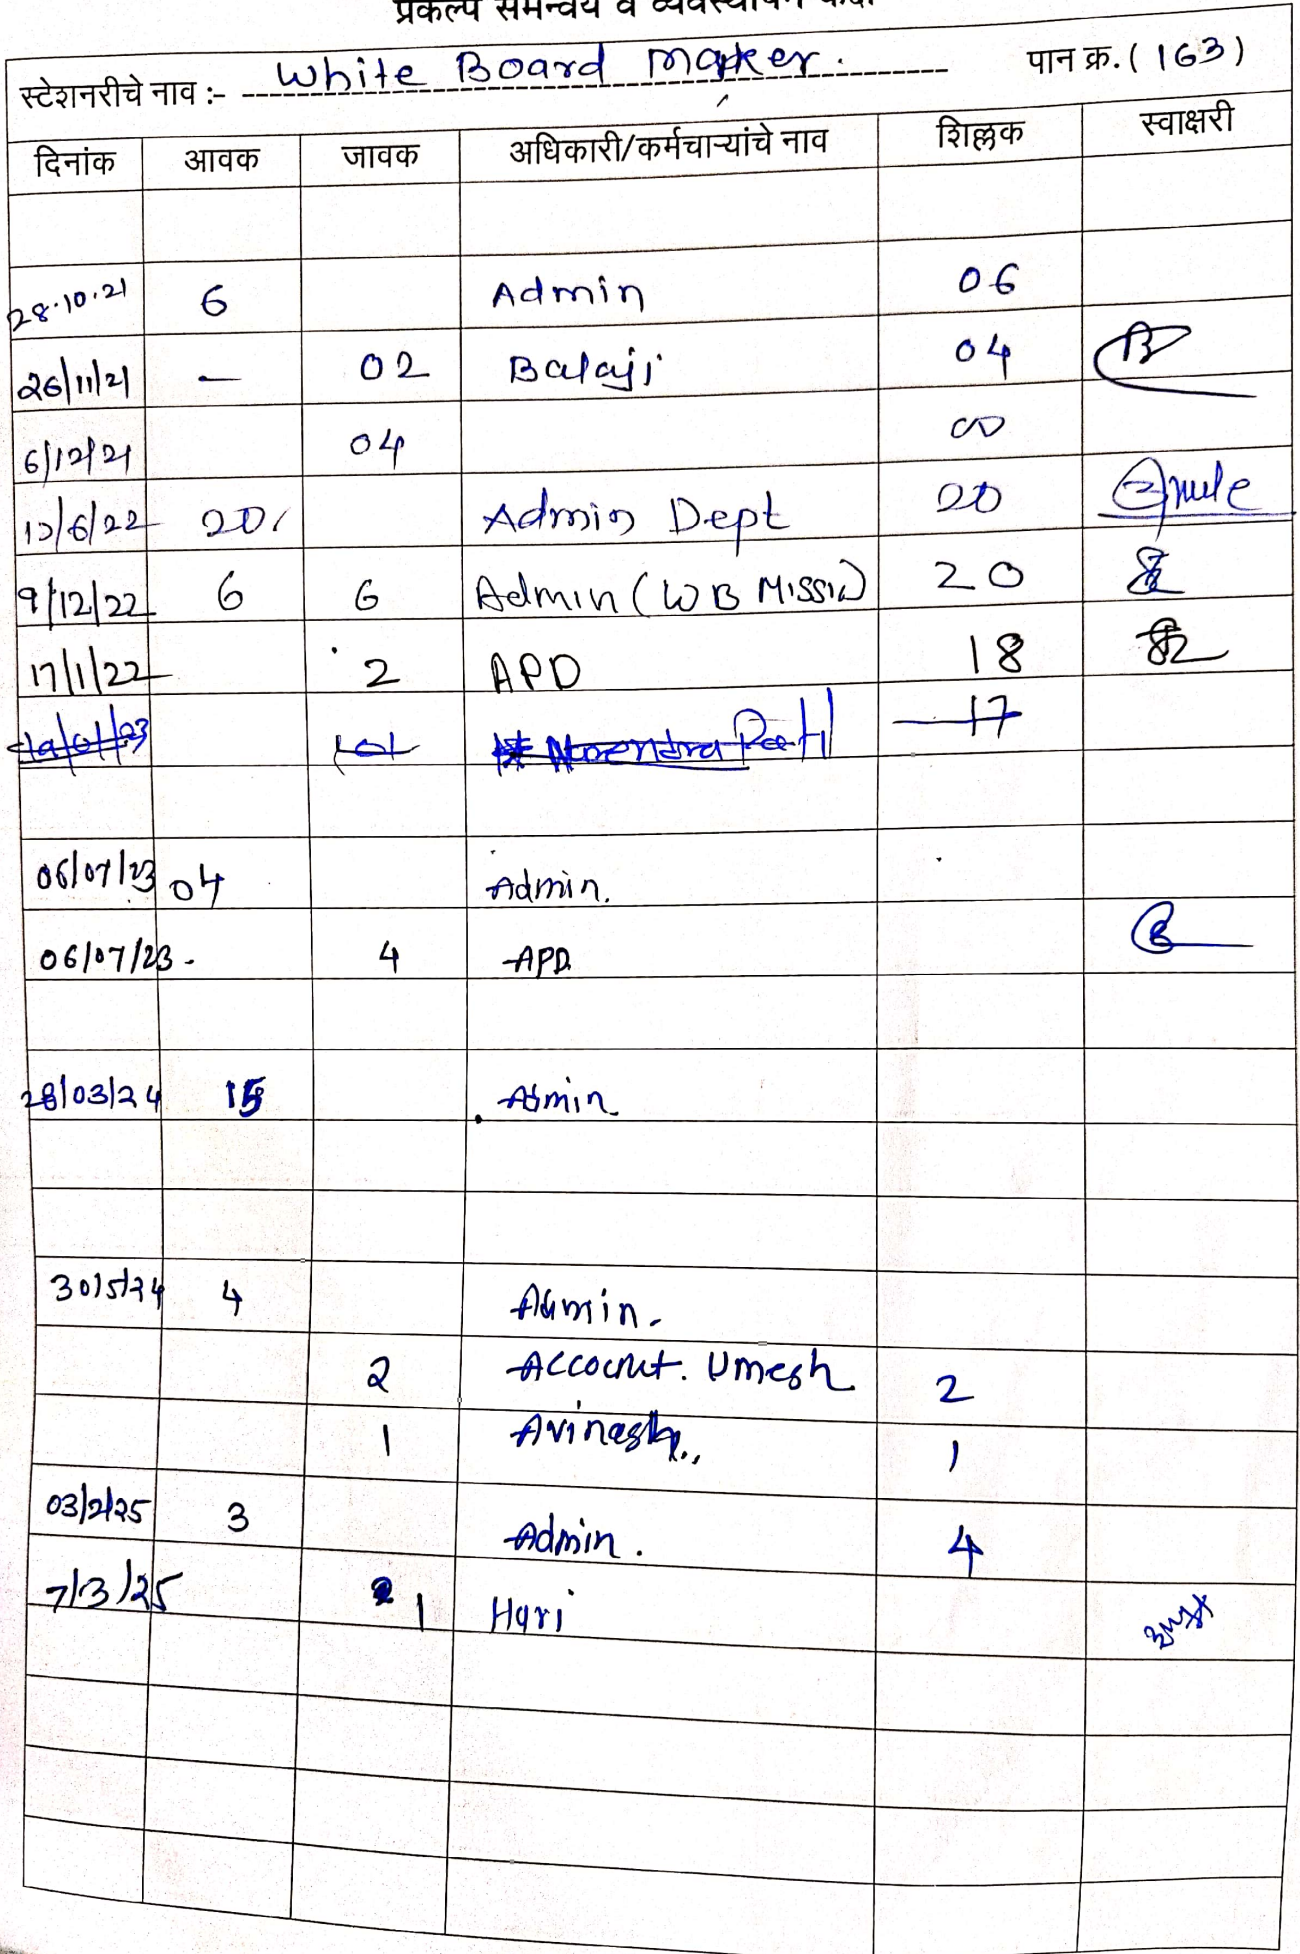 प्रकल्प समन्वय व व्यवस्थापन कक्ष
स्टेशनरीचे नाव :- White Board Marker. पान क्र. ( 163 )
दिनांक आवक जावक अधिकारी/कर्मचाऱ्यांचे नाव शिल्लक स्वाक्षरी
28.10.21 6 Admin 06
26/11/21 – 02 Balaji 04
6/12/21 04 00
12/6/22 20/ Admin Dept 20
9/12/22 6 6 Admin (WB Missin) 20
17/1/22 2 APD 18
19/01/23 01 Narendra Patil 17
06/07/23 04 Admin.
06/07/23 - 4 APD
28/03/24 15 Admin
30/5/24 4 Admin.
2 Account. Umesh 2
1 Avinash.. 1
03/2/25 3 Admin. 4
7/3/25 1 Hari